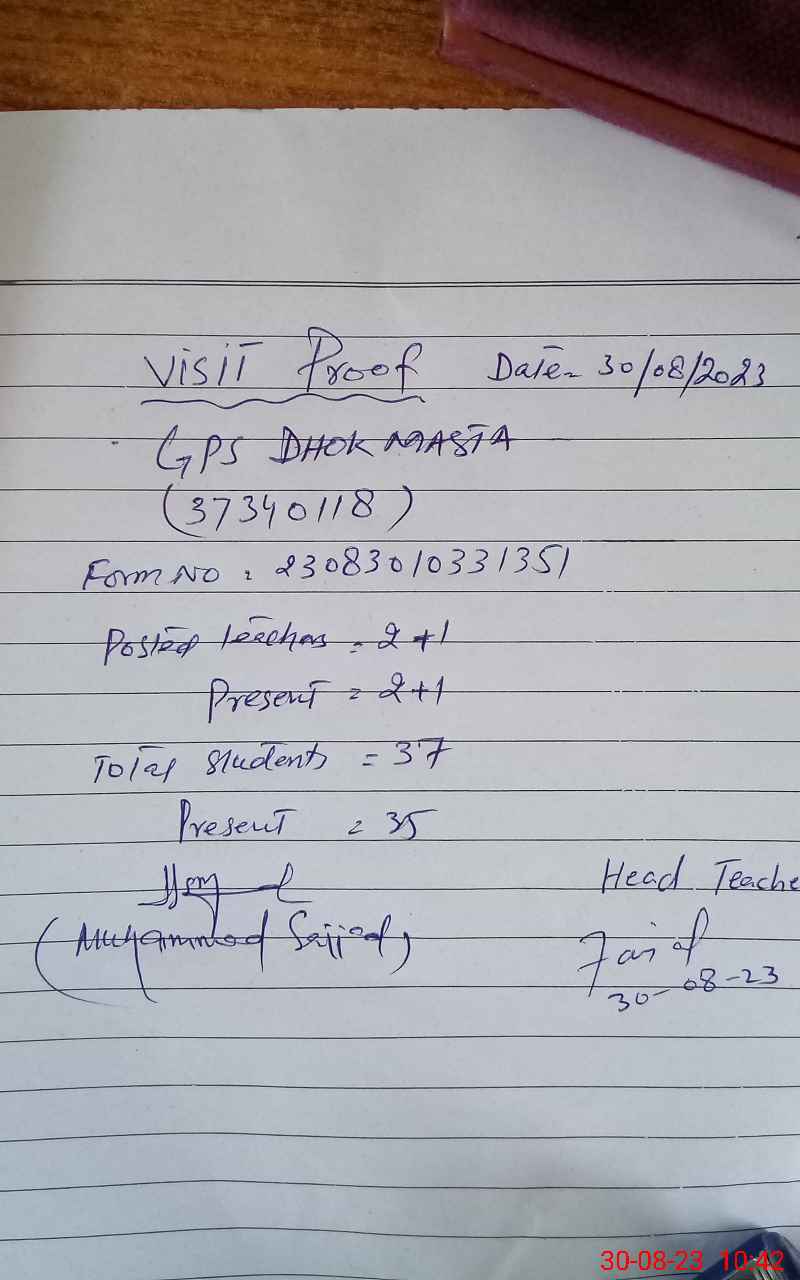 VISIT Proof Date= 30/08/2023
GPS DHOK MASTA
(37340118)
Form No : 23083010331351
Posted teachers = 2+1
Present = 2+1
Total students = 37
Present = 35
Head Teache
(Muhammad Sajjad)
30-08-23
30-08-23 10:42